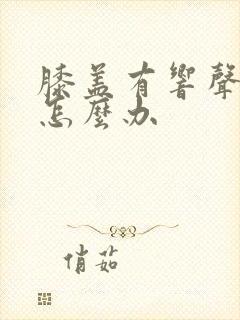 膝盖有響聲
怎麼办
俏茹